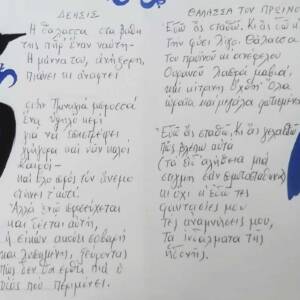 ΔΕΗΣΙΣ
Η θάλασσα στα βάθη
της πήρ' έναν ναύτη—
Η μάννα του, ανήξερη,
πιαίνει κι ανάφτει
στην Παναγία μπροστά
ένα υψηλό κερί
για να επιστρέψει
γλήγορα και ναν καλοί
καιροί—
και όλο προς τον άνεμο
στήνει τ' αυτί.
Αλλά ενώ προσεύχεται
και δέεται αυτή,
η εικών ακούει σοβαρή
και λυπημένη, ξεύροντας
πως δεν θα έρθει πια ο
υιός που περιμένει.
ΘΑΛΑΣΣΑ ΤΟΥ ΠΡΩΙΝΟΥ
Εδώ ας σταθώ. Κι ας δω κ
την φύσι λίγο. Θάλασσα
του πρωϊού κι ανέφελου
ουρανού λαμπρά μαβιά,
και κίτρινη όχθη· όλα
ωραία και μεγάλα φωτισμένα
Εδώ ας σταθώ. Κι ας γελασθώ
πως βλέπω αυτά
(τα είδ' αλήθεια μια
στιγμή σαν πρωτοστάθηκα)
κι όχι κ' εδώ τες
φαντασίες μου
τες αναμνήσεις μου,
τα ινδάλματα της
ηδονής.